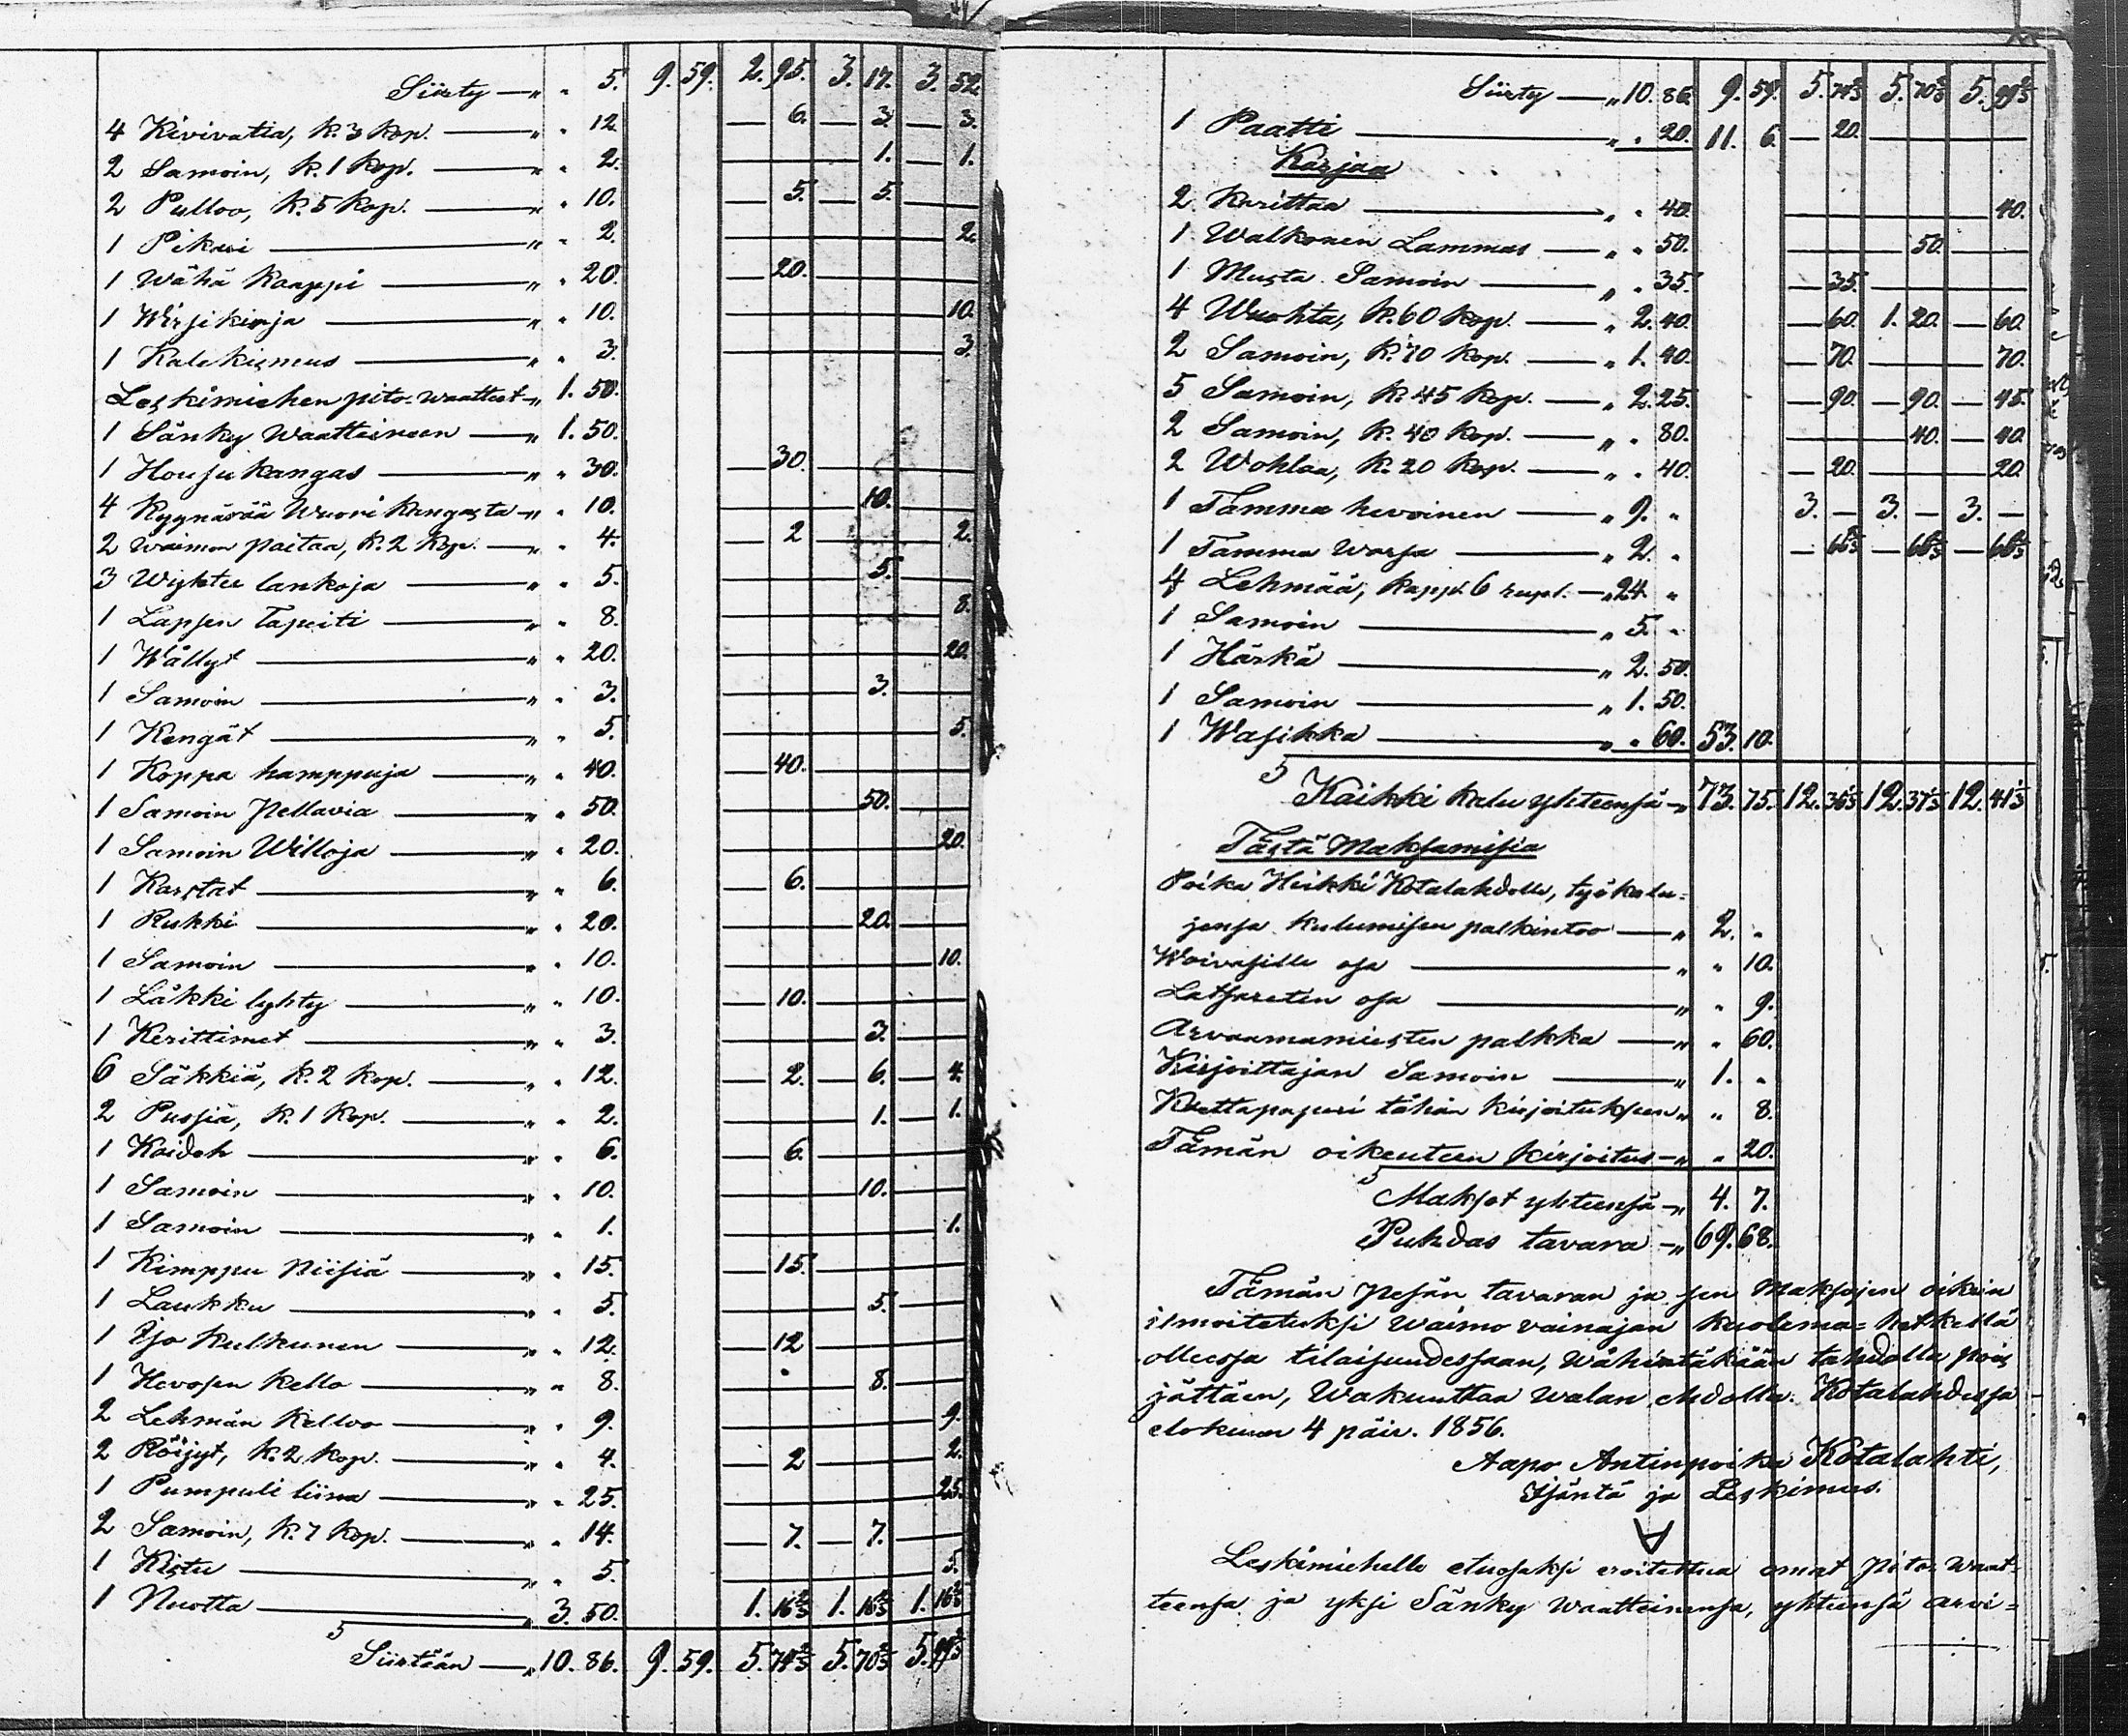 Siirty — „ „ 5. 9. 59. 2. 95. 3. 17. 3. 52.
4 Kivivatia, k. 3 kop. — „ „ 12. — 6. — 3. — 3.
2 Samoin, k. 1 kop. — „ „ 2. — 1. — 1.
2 Pulloo, k. 5 kop. — „ „ 10. — 5. — 5.
1 Pikari — „ „ 2. — 2.
1 Wähä Kaappi — „ „ 20. — 20. —
1 Wirsikirja — „ „ 10. — 10.
1 Katekismus — „ „ 3. — 3.
Leskimiehen pito-waatteet — „ 1. 50.
1 Sänky Waatteineen — „ 1. 50.
1 Housu kangas — „ „ 30. — 30. —
4 Kyynärää Wuori kangasta — „ „ 10. — 10. —
2 waimon paitaa, k. 2 kop. — „ „ 4. — 2 — 2.
3 Wyhtee lankoja — „ „ 5. — 5. —
1 Lapsen Tapeiti — „ „ 8. — 8.
1 Wällyt — „ „ 20. — 20.
1 Samoin — „ „ 3. — 3. —
1 Kengät — „ „ 5. — 5.
1 Koppa hamppuja — „ „ 40. — 40. —
1 Samoin pellavia — „ „ 50. — 50. —
1 Samoin Willoja — „ „ 20. — 20.
1 Karstat — „ „ 6. — 6. —
1 Rukki — „ „ 20. — 20. —
1 Samoin — „ „ 10. — 10.
1 Läkki lyhty — „ „ 10. — 10. —
1 Kerittimet — „ „ 3. — 3. —
6 Säkkiä, k. 2 kop. — „ „ 12. — 2. — 6. — 4.
2 Pussia, k. 1 kop. — „ „ 2. — 1. — 1.
1 Kaideh — „ „ 6. — 6. —
1 Samoin — „ „ 10. — 10. —
1 Samoin — „ „ 1. — 1.
1 Kimppu Niisiä — „ „ 15. — 15. —
1 Laukku — „ „ 5. — 5. —
1 Iso kulkunen — „ „ 12. — 12 —
1 Hevosen kello — „ „ 8. — 8. —
2 Lehmän kelloo — „ „ 9. — 9.
2 Röijyt, k. 2 kop. — „ „ 4. — 2 — 2.
1 Pumpuli liina — „ „ 25. — 25.
2 Samoin, k. 7 kop. — „ „ 14. — 7. — 7. —
1 Kistu — „ „ 5. — 5.
1 Nuotta — „ 3. 50. 1. 16⅔ 1. 16⅔ 1. 16⅔
Siirtään — „ 10. 86. 9. 59. 5. 74⅔ 5. 70⅔ 5. 99⅔
Siirty — „ 10. 86. 9. 59. 5. 74⅔ 5. 70⅔ 5. 99⅔
1 Paatti — „ „ 20. 11. 6. — 20. —
Karjaa
2 Karittaa — „ „ 40. — 40.
1 Walkonen Lammas — „ „ 50. — 50. —
1 Musta Samoin — „ „ 35. — 35. —
4 Wuohta, k. 60 kop. — „ 2. 40. — 60. 1. 20. — 60.
2 Samoin, k. 70 kop. — „ 1. 40. — 70. — 70.
5 Samoin, k. 45 kop. — „ 2. 25. — 90. — 90. — 45.
2 Samoin, k. 40 kop. — „ „ 80. — 40. — 40.
2 Wohlaa, k. 20 kop. — „ „ 40. — 20. — 20.
1 Tamma hevoinen — „ 9. „ 3. — 3. — 3. —
1 Tamma Warsa — „ 2. „ — 66⅔ — 66⅔ — 66⅔
4 Lehmää, kappl. 6 rupl. — „ 24. „
1 Samoin — „ 5. „
1 Härkä — „ 2. 50.
1 Samoin — „ 1. 50.
1 Wasikka — „ „ 60. 53. 10.
Kaikki kalu yhteensä — „ 73. 75. 12. 36⅓ 12. 37⅓ 12. 41⅓
Tästä Maksamisia
Poika Heikki Kotalahdelle, työkalu=
jensa kulumisen palkintoo — „ 2. „
Waivasille osa — „ „ 10.
Latsaretin osa — „ „ 9.
Arvaamamiesten palkka — „ „ 60.
Kirjoittajan Samoin — „ 1. „
Karttapaperi tähän kirjoitukseen „ „ 8.
Tämän oikeuteen kirjoitus — „ „ 20.
Maksot yhteensä — „ 4. 7.
Puhdas tavara — „ 69. 68.
Tämän pesän tavaran ja sen Maksojen oikein
ilmoitetuksi Waimo vainajan kuolema=hetkellä
olleessa tilaisuudessaan, Wähintäkään tahdolla pois
jättäen, Wakuuttaa Walan ehdolla. Kotalahdessa
elokuun 4 päiv. 1856.
Aapo Antinpoika Kotalahti,
Isäntä ja Leskimies.
A
Leskimiehelle etuosaksi eroitettua omat pito-waat=
teensa ja yksi Sänky Waatteinensa, yhteensä arvi=